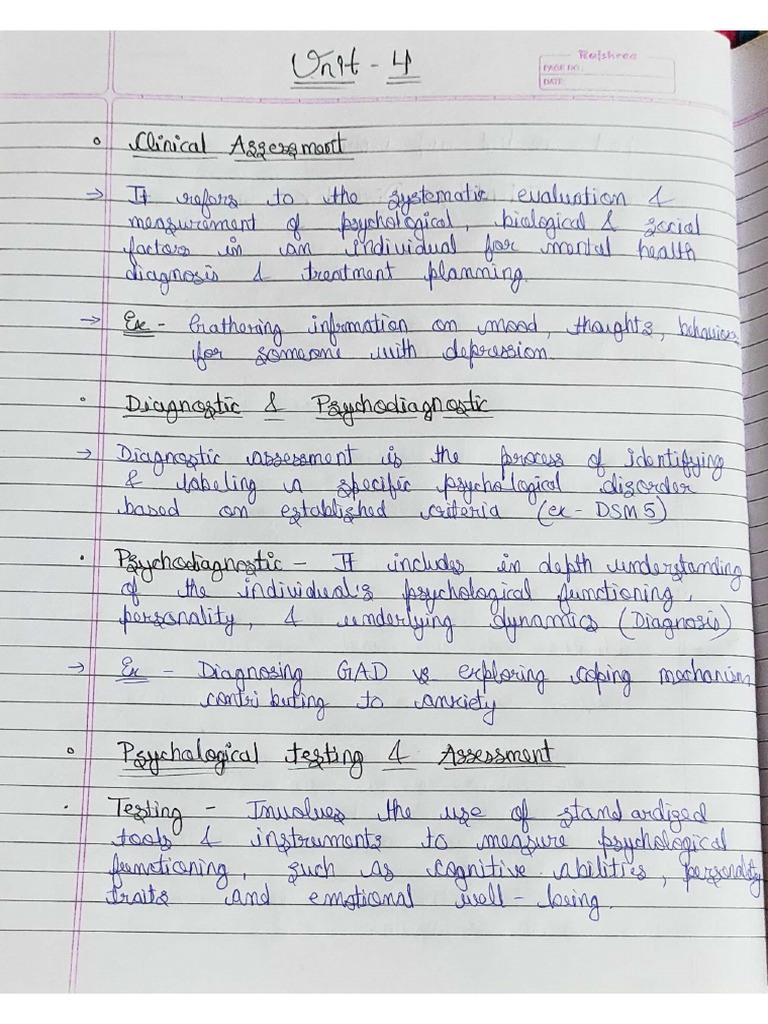 Unit - 4
Rajshree
PAGE NO.:
DATE:
Clinical Assessment
→ It refers to the systematic evaluation &
measurement of psychological, biological & social
factors in an individual for mental health
diagnosis & treatment planning.
→ Ex - Gathering infrmation on mood, thoughts, behaviors
for someone with depression.
Diagnostic & Psychodiagnostic
→ Diagnostic assessment is the process of identifying
& labeling a specific psychological disorder
based on established criteria (ex - DSM 5)
Psychodiagnostic - It includes in depth understanding
of the individual's psychological functioning,
personality, & underlying dynamics (Diagnosis)
→ Ex - Diagnosing GAD vs exploring coping mechanism
contributing to anxiety
Psychological testing & Assessment
Testing - Involves the use of standardized
tools & instruments to measure psychological
functioning, such as cognitive abilities, personality
traits and emotional well-being.